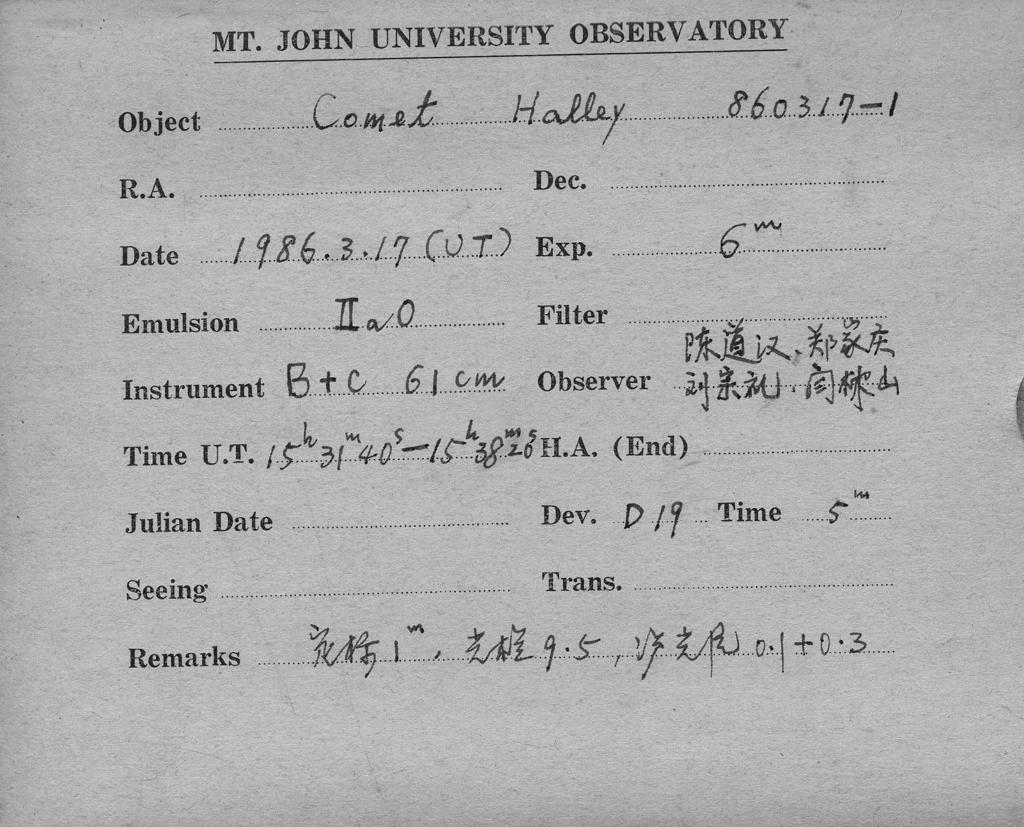 MT. JOHN UNIVERSITY OBSERVATORY
Object Comet Halley 860317-1
R.A. Dec.
Date 1986.3.17 (UT) Exp. 6ᵐ
Emulsion IIaO Filter
陈道汉、郑家庆
Instrument B+C 61cm Observer 刘宗礼、闫林山
Time U.T. 15ʰ31ᵐ40ˢ-15ʰ38ᵐ20ˢ H.A. (End)
Julian Date Dev. D19 Time 5ᵐ
Seeing Trans.
Remarks 定标1ᵐ, 光楔9.5, 光 0.1+0.3